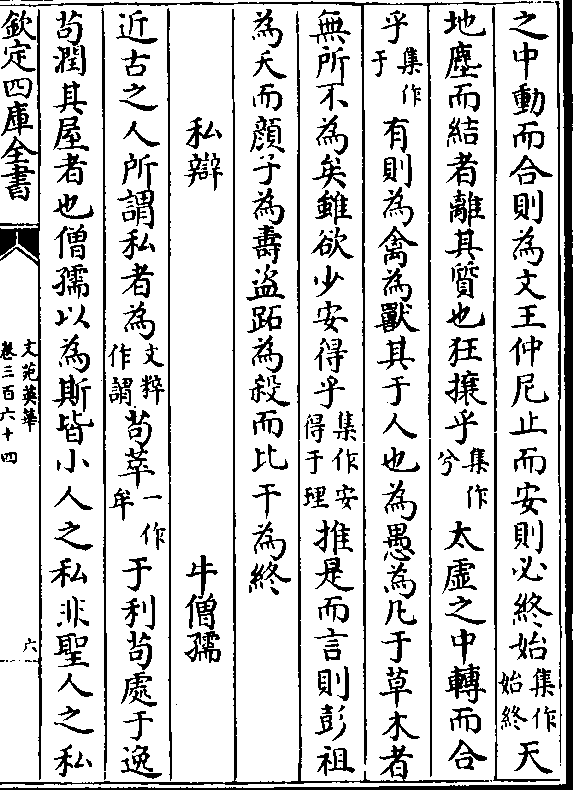 之中動而合則為文王仲尼止而安則必終始集作始終天
地塵而結者離其質也狂攘乎集作兮太虛之中轉而合
乎集作于有則為禽為獸其于人也為愚為凡于草木者
無所不為矣雖欲少安得乎集作安得于理推是而言則彭祖
為夭而顔子為壽盜跖為殺而比干為終
私辯 牛僧孺
近古之人所謂私者為文粹作謂苟萃一作牟于利苟處于逸
苟潤其屋者也僧孺以為斯皆小人之私非聖人之私
欽定四庫全書
文苑英華
卷三百六十四
六